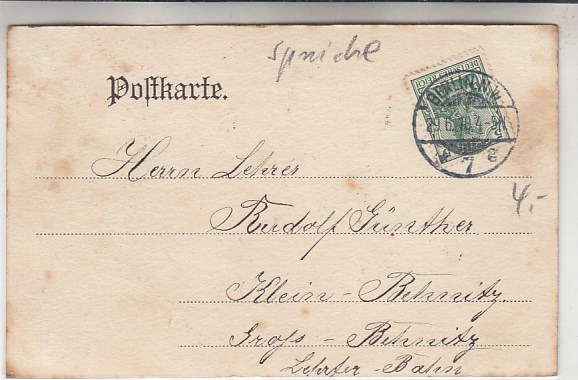 Sprüche
Postkarte.
DEUTSCHES REICH
BERLIN N.W.
4-5N
* 7 e
Herrn Lehrer
Rudolf Günther
4.-
Klein-Behnitz
Gross-Behnitz
Lehrter-Bahn